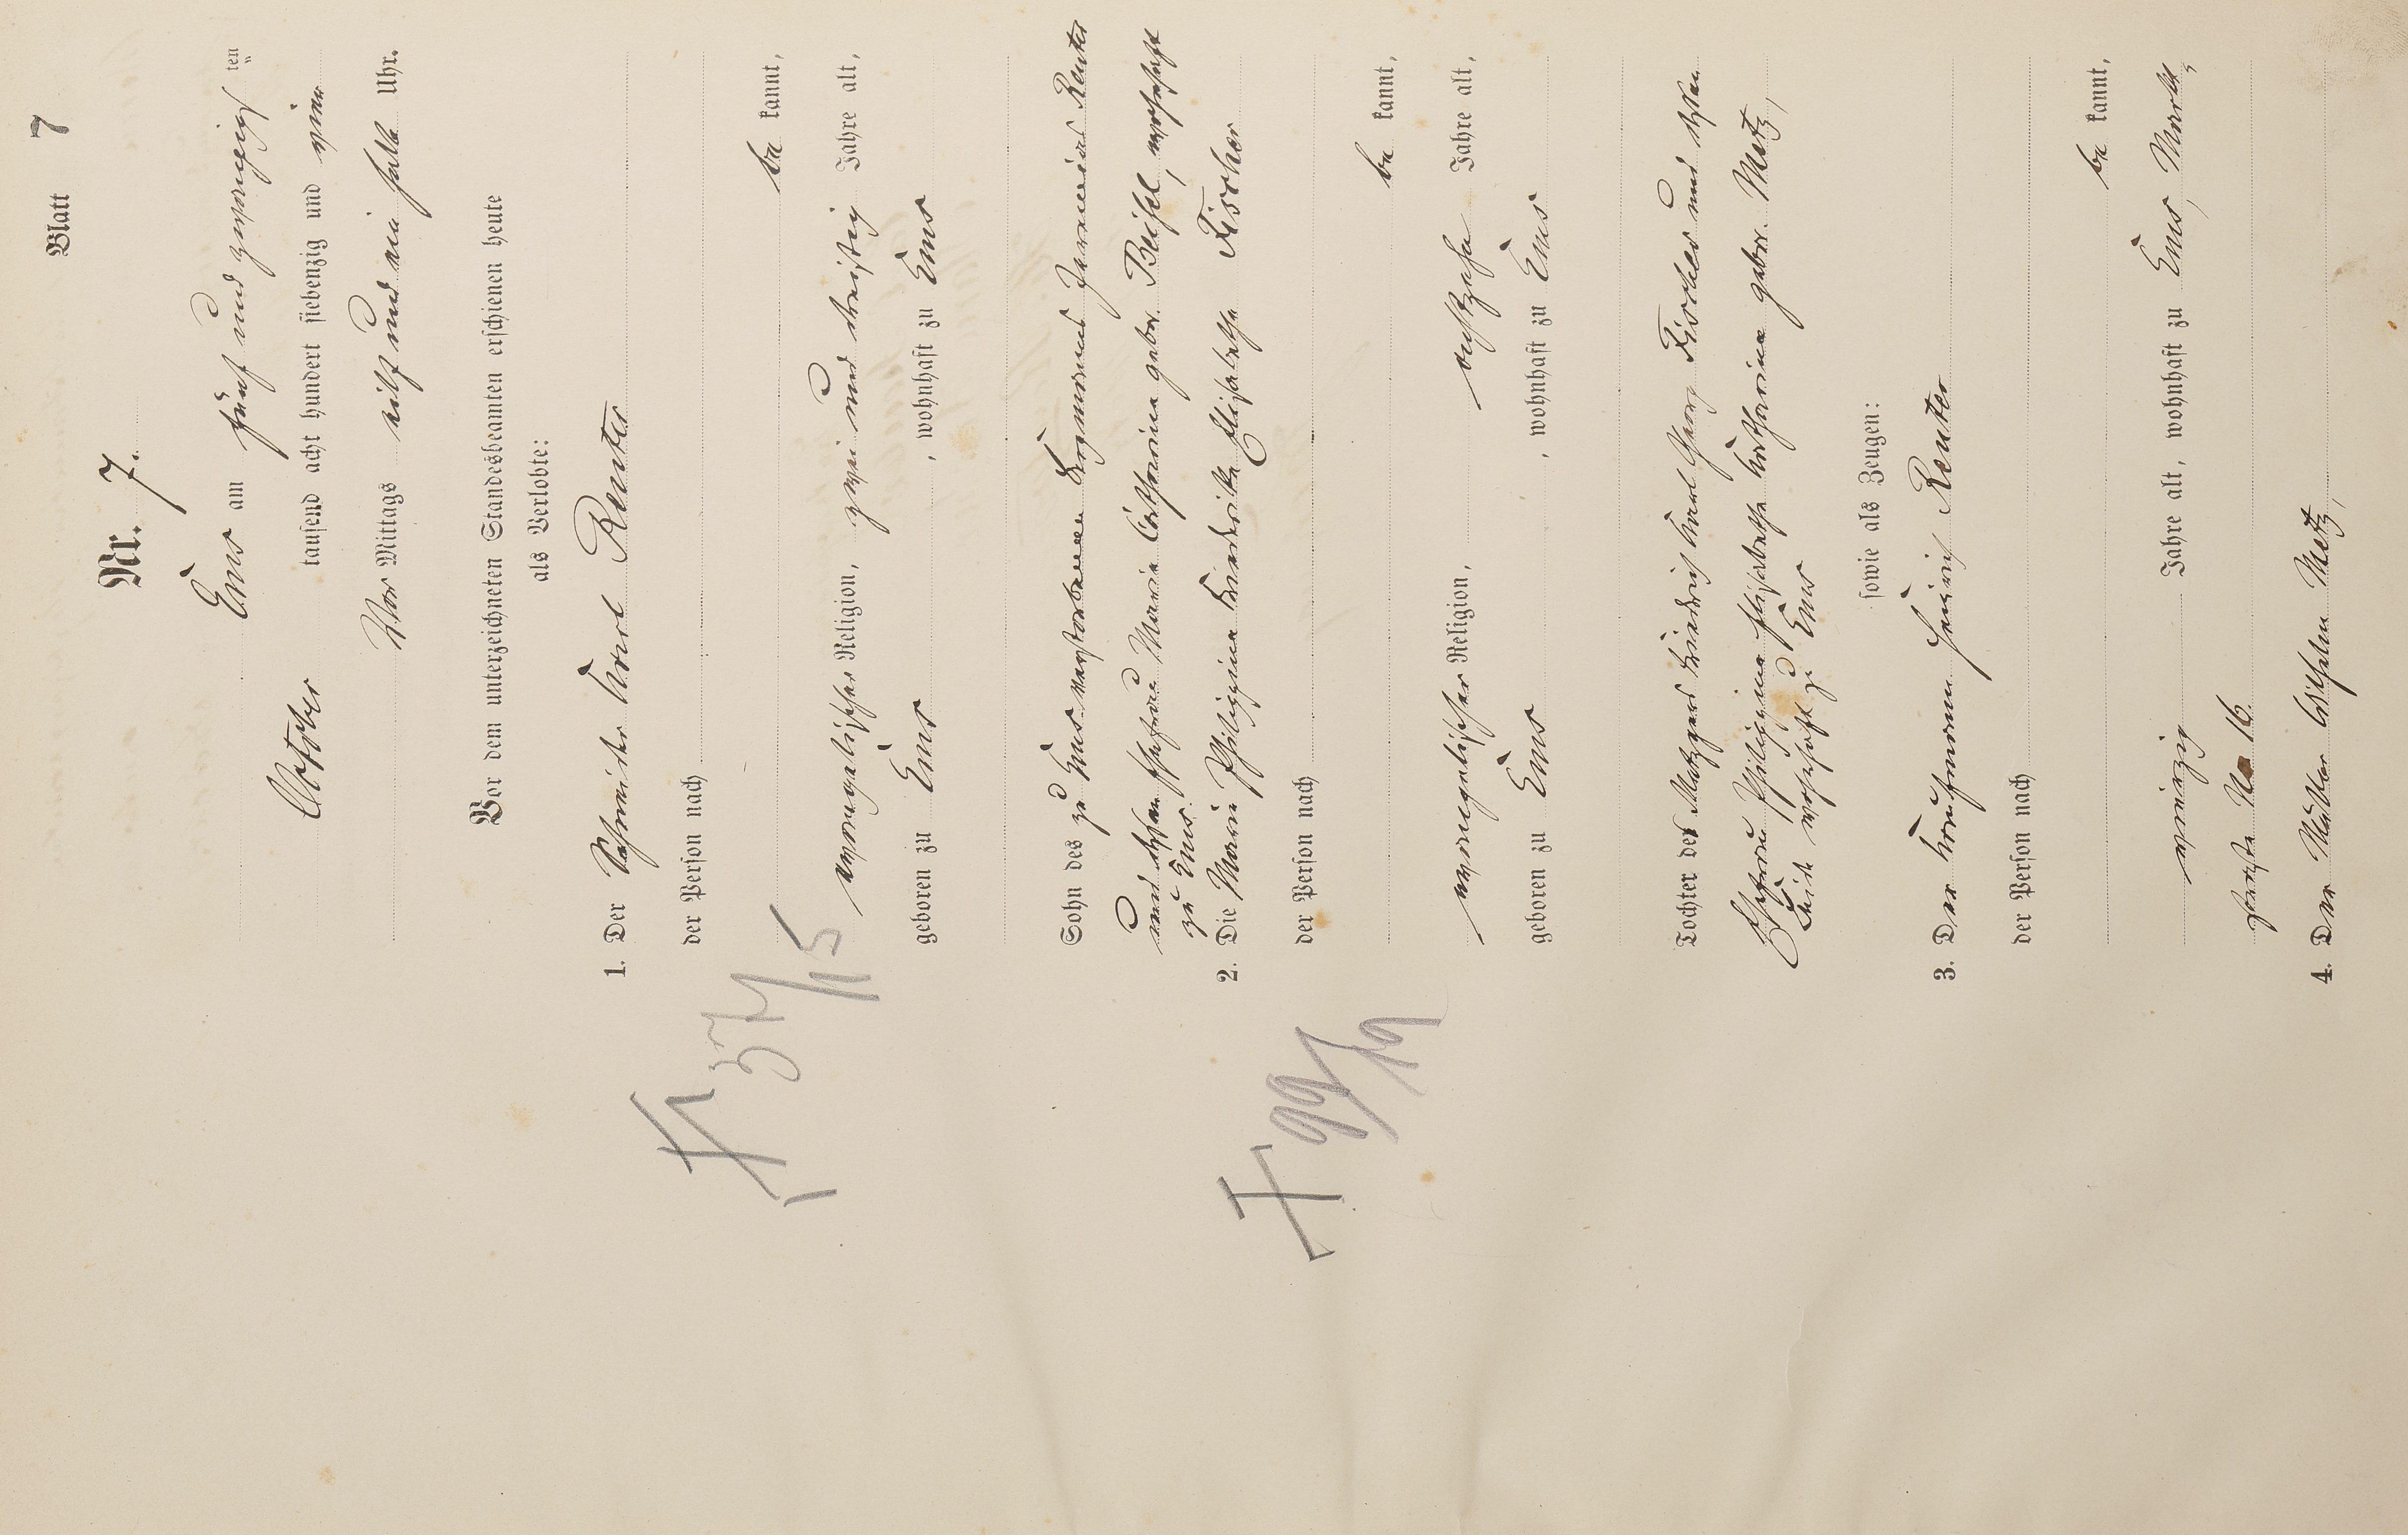 Blatt 7
Nr. 7.
Ems am fünf und zwanzigsten
October tausend acht hundert siebenzig und vier
Vor Mittags elf und ein halb Uhr.
Vor dem unterzeichneten Standesbeamten erschienen heute
als Verlobte:
1. Der Schneider Karl Reuter
der Person nach
be kannt,
evangelischer Religion, zwei und dreißig Jahre alt,
geboren zu Ems, wohnhaft zu Ems
Sohn des zu Ems verstorbenen Reuter
und dessen Ehefrau Maria Catharina gebor. Beisel, wohnhaft
zu Ems.
2. Die Maria Philippina Friederike Elisabetha Fischer
der Person nach
be kannt,
evangelischer Religion, achtzehn Jahre alt,
geboren zu Ems, wohnhaft zu Ems
Tochter des Metzgers Friedrich Karl Georg Fischer und dessen
Ehefrau Philippina Elisabetha Katharina gebor. Metz,
Beide wohnhaft zu Ems
sowie als Zeugen:
3. Der Kaufmann Heinrich Reuter
der Person nach
be kannt,
vierzig Jahre alt, wohnhaft zu Ems, Markt
straße No 16.
4. Der Wilhelm Metz,